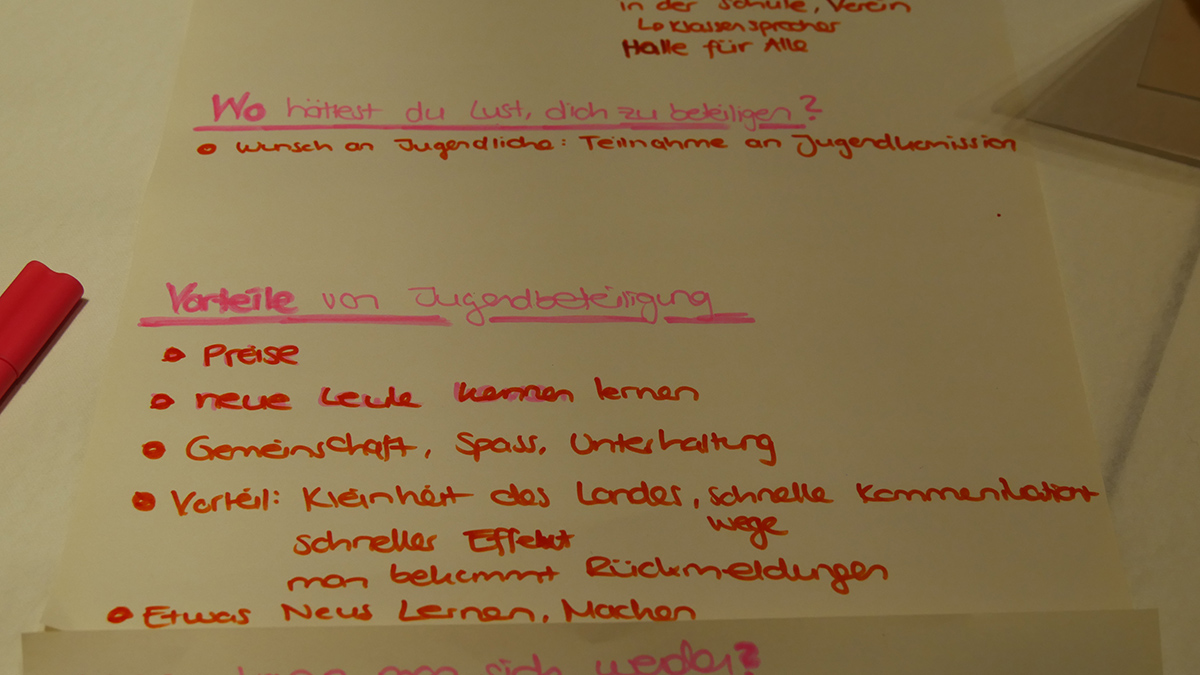 in der Schule, Verein
↳ Klassensprecher
Halle für Alle
Wo hättest du Lust, dich zu beteiligen?
• Wunsch an Jugendliche: Teilnahme an Jugendkomission
Vorteile von Jugendbeteiligung
• Preise
• neue Leute kennen lernen
• Gemeinschaft, Spass, Unterhaltung
• Vorteil: Kleinheit des Landes, schnelle Kommunikations
wege
schneller Effekt
man bekommt Rückmeldungen
• Etwas Neus Lernen, Machen
man sich wenden?